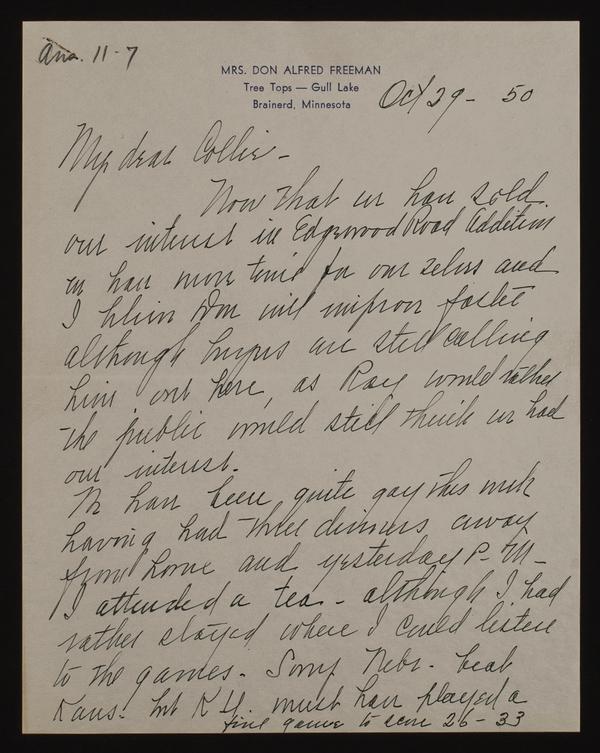 Ans. 11-7
MRS. DON ALFRED FREEMAN
Tree Tops — Gull Lake
Brainerd, Minnesota
Oct 29 - 50
My dear Collie -
Now that we have sold
our interest in Edgewood Road Addition
we have more time for our selves and
I believe Don will improve faster
although buyers are still calling
him out here, as Ray would rather
the public would still think we had
our interest.
We have been quite gay this week
having had three dinners away
from home and yesterday P-M-
I attended a tea - although I had
rather stayed where I could listen
to the games - Sorry Nebr. beat
Kans. but K U. must have played a
fine game to score 26-33